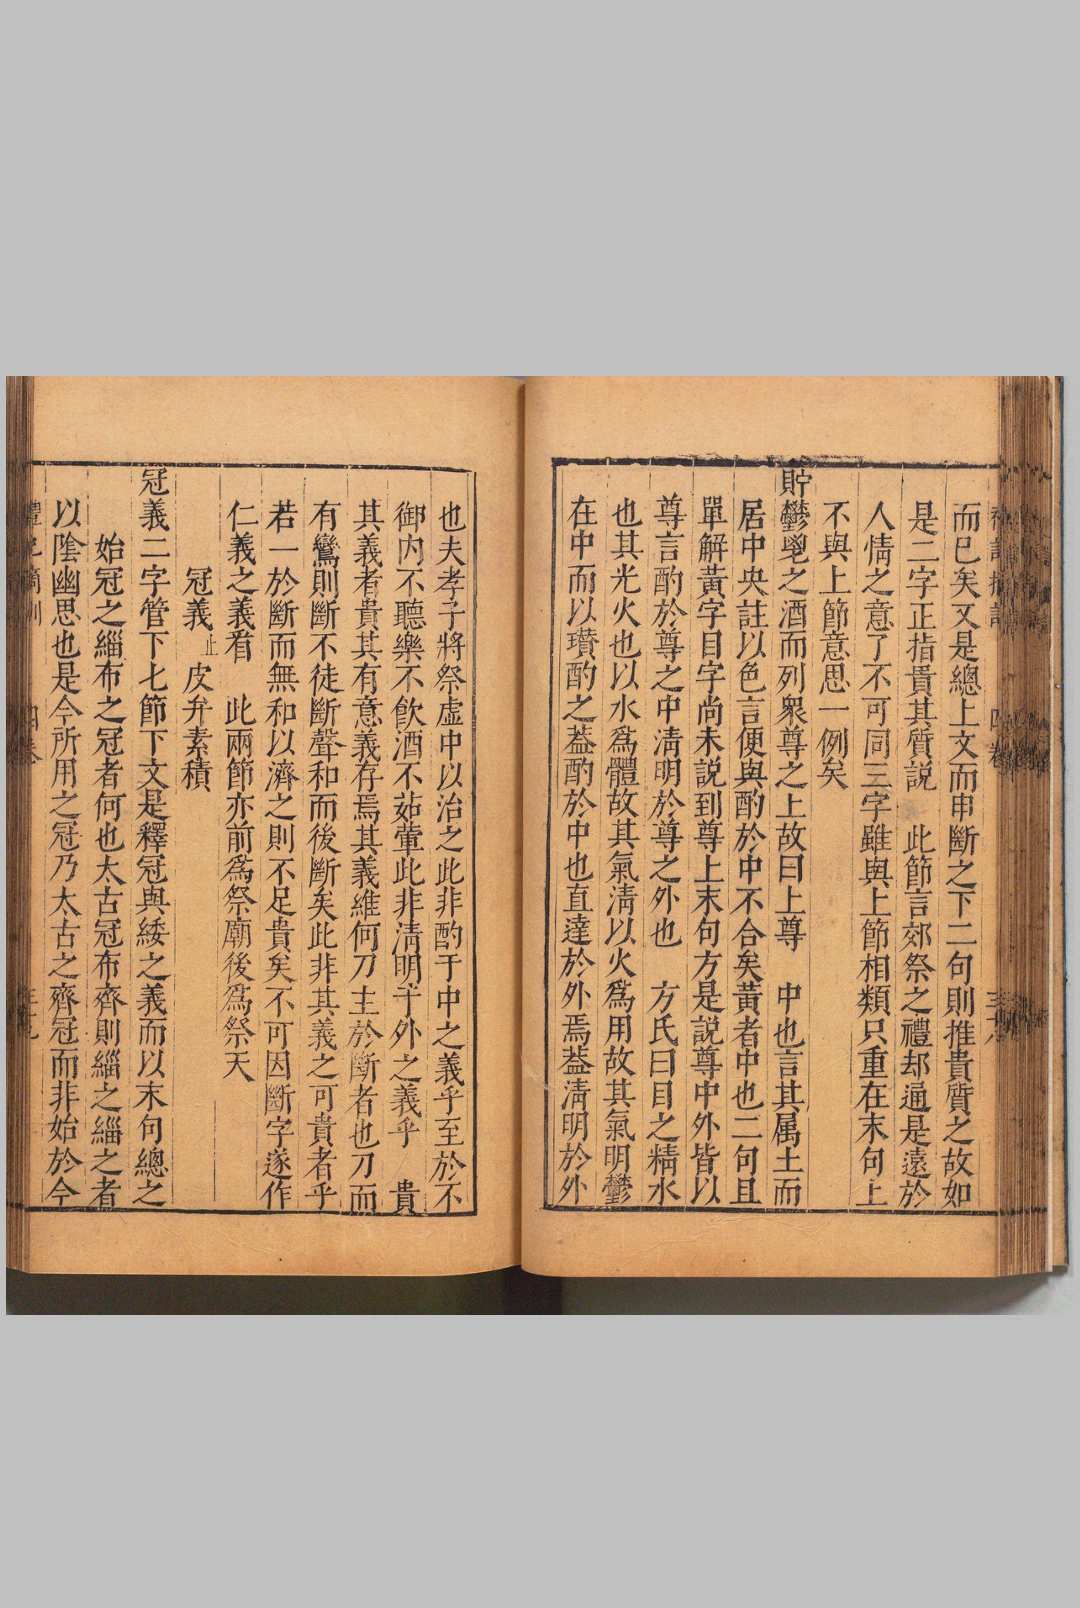 而巳矣又是總上文而申斷之下二句則推貴質之故如
是二字正指貴其質説　此節言郊祭之禮却通是遠於
人情之意了不可同三字雖與上節相類只重在末句上
不與上節意思一例矣
貯鬱鬯之酒而列衆尊之上故曰上尊　中也言其属土而
居中央註以色言便與酌於中不合矣黃者中也二句且
單解黃字目字尚未説到尊上末句方是説尊中外皆以
尊言酌於尊之中淸明於尊之外也　方氏曰目之精水
也其光火也以水爲體故其氣淸以火爲用故其氣明鬱
在中而以瓚酌之葢酌於中也直達於外焉葢淸明於外
也夫孝子將祭虛中以治之此非酌于中之義乎至於不
御内不聽樂不飲酒不茹葷此非淸明于外之義乎　貴
其義者貴其有意義存焉其義維何刀主於斷者也刀而
有鸞則斷不徒斷聲和而後斷矣此非其義之可貴者乎
若一於斷而無和以濟之則不足貴矣不可因斷字遂作
仁義之義看　此兩節亦前爲祭廟後爲祭天
冠義止皮弁素積
冠義二字管下七節下文是釋冠與緌之義而以末句總之
始冠之緇布之冠者何也太古冠布齊則緇之緇之者
以陰幽思也是今所用之冠乃太古之齊冠而非始於今